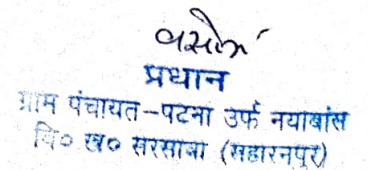 प्रधान
ग्राम पंचायत-पटना उर्फ नयाबांस
वि० ख० सरसावा (सहारनपुर)